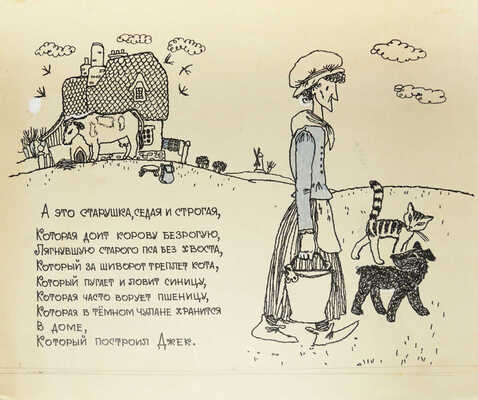 А это старушка, седая и строгая,
Которая доит корову безрогую,
Лягнувшую старого пса без хвоста,
Который за шиворот треплет кота,
Который пугает и ловит синицу,
Которая часто ворует пшеницу,
Которая в тёмном чулане хранится
В доме,
Который построил Джек.